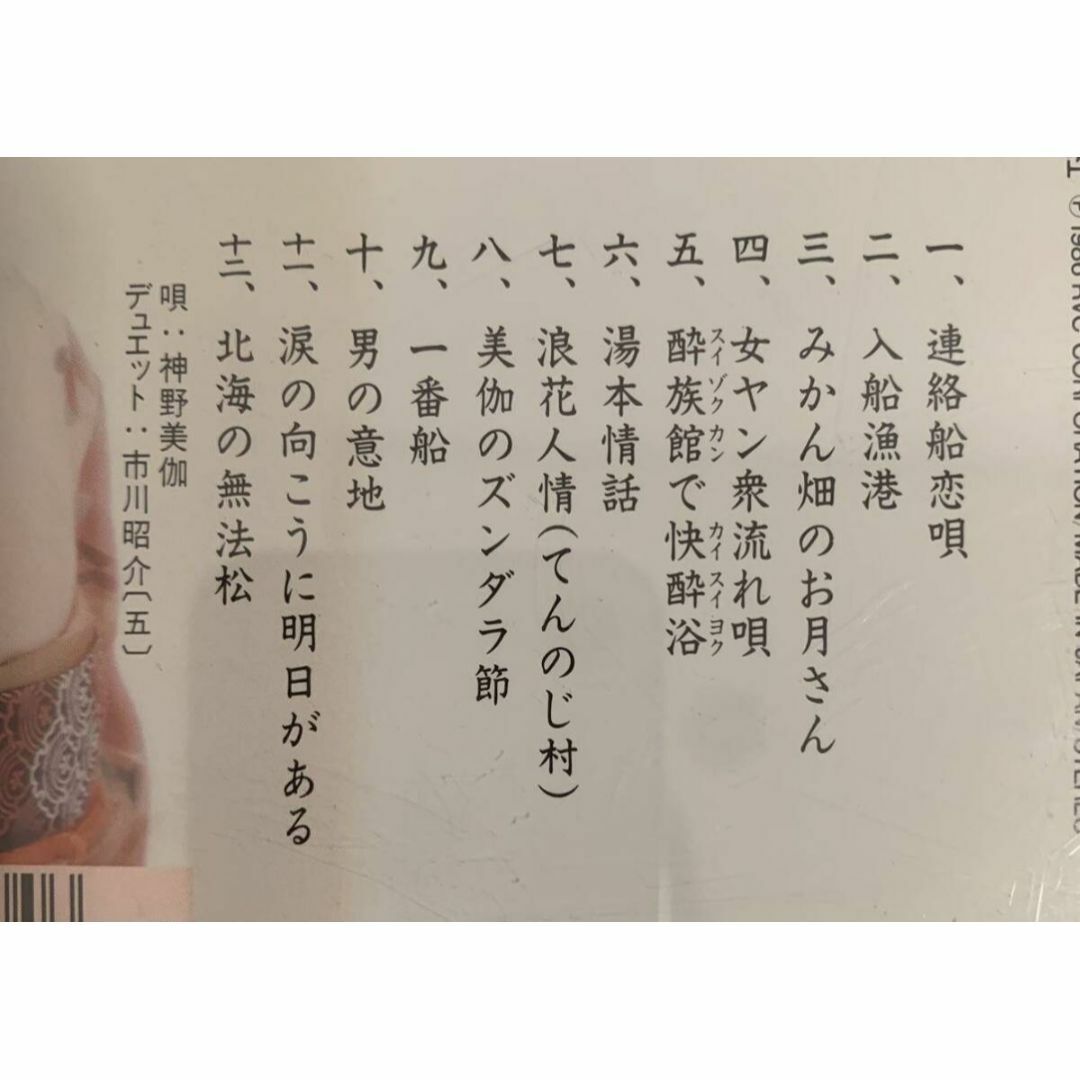 一、連絡船恋唄
二、入船漁港
三、みかん畑のお月さん
四、女ヤン衆流れ唄
五、酔族館で快酔浴
スイゾクカン カイスイヨク
六、湯本情話
七、浪花人情(てんのじ村)
八、美伽のズンダラ節
九、一番船
十、男の意地
十一、涙の向こうに明日がある
十二、北海の無法松
唄:神野美伽
デュエット:市川昭介〔五〕